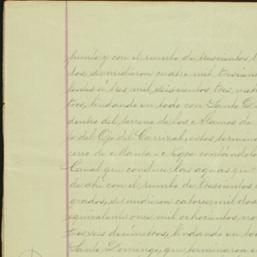 punto y con el rumbo de trescientos
dos, se midieron cuatro mil trescien
lentes á tres mil seiscientos tres me
tros, lindando en todo con Santo D
dentro del terreno de los Alamos de
lo del Ojo del Carrizal, estos termin
cerro de Manta e Napo contándolo
Canal que conduce las aguas que
de ahí con el rumbo de trescientos
grados, se midieron catorce mil dos
equivalente once mil ochocientos no
tos seis decímetros, lindando en to
Santo Domingo, que terminaron e